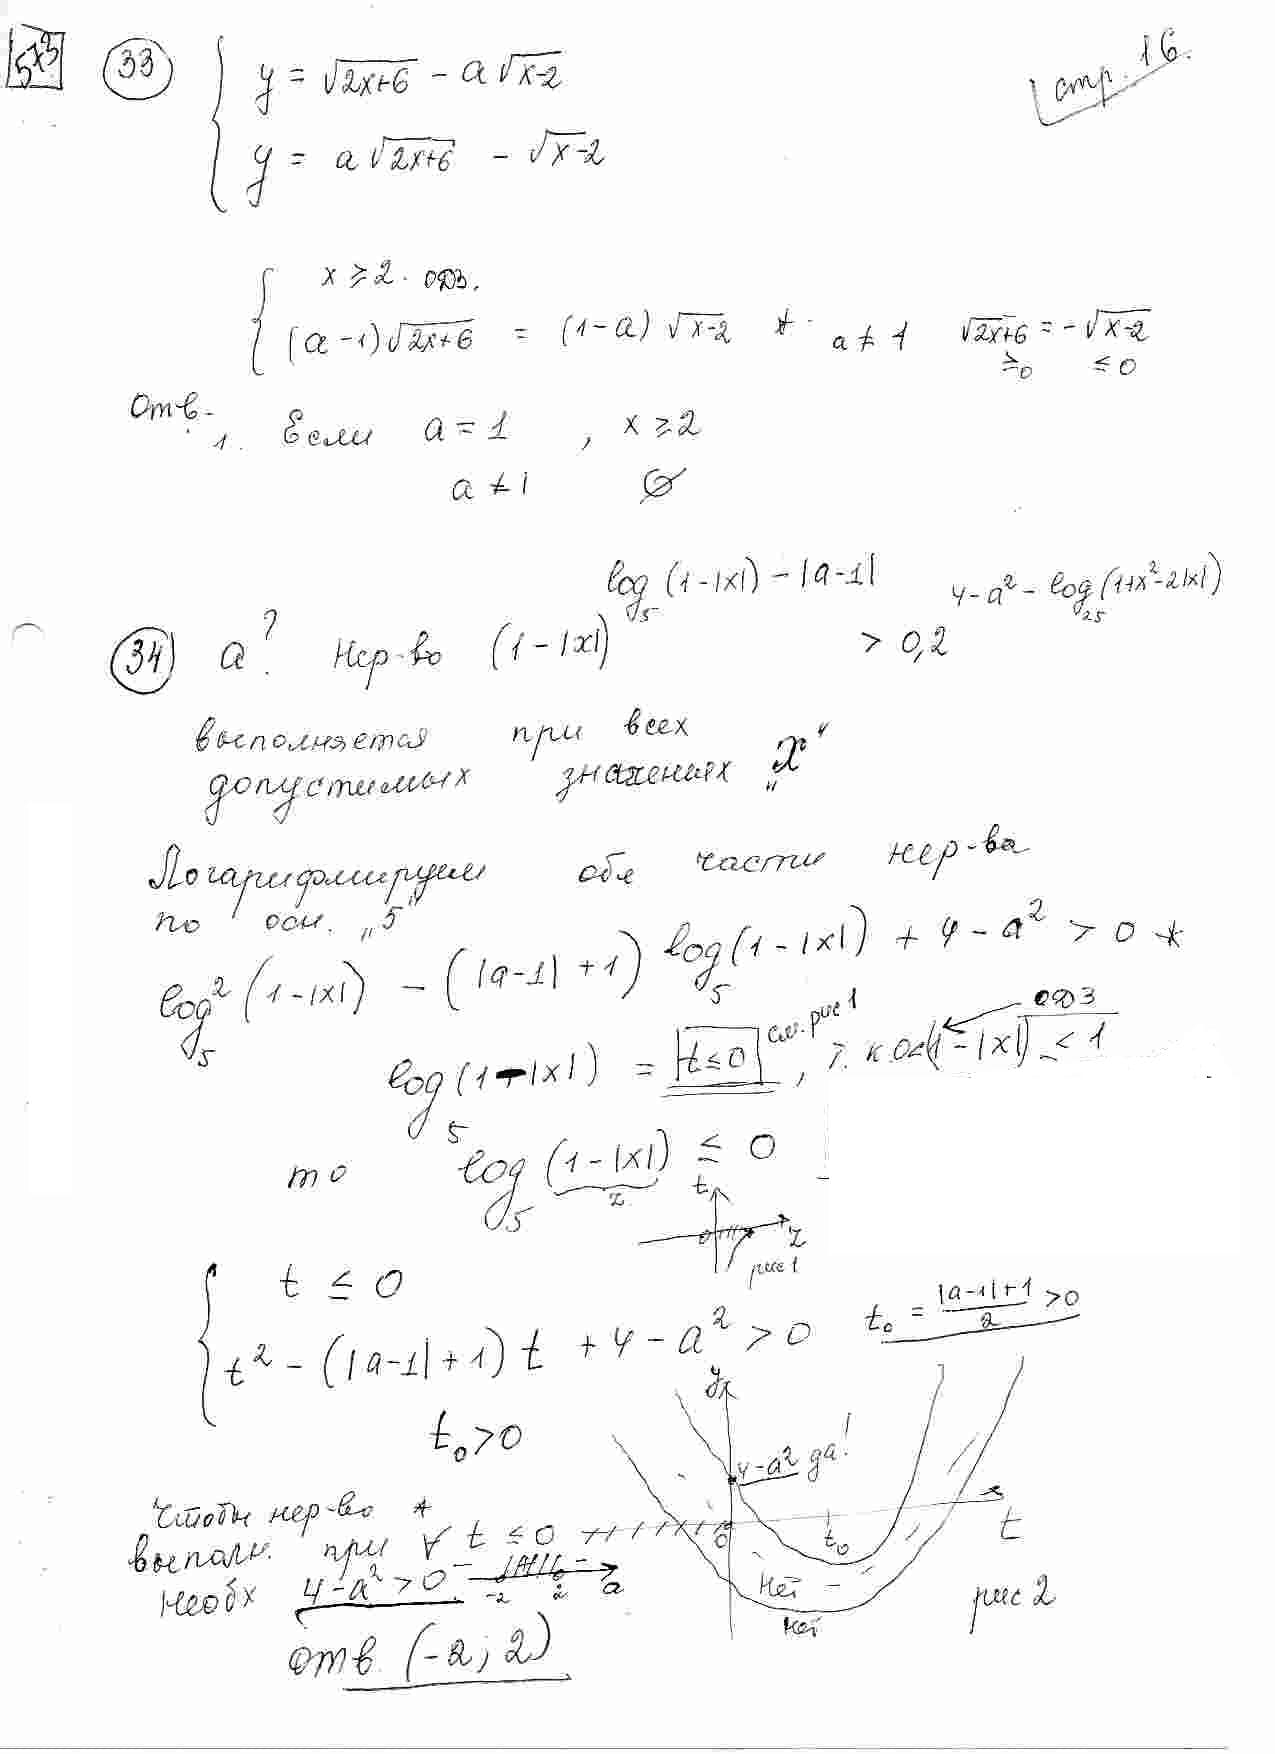 5х3
33
y = √(2x+6) - a√(x-2)
стр. 16.
y = a√(2x+6) - √(x-2)
x ≥ 2. ОДЗ.
(a-1)√(2x+6) = (1-a)√(x-2) * a ≠ 1 √(2x+6) = -√(x-2)
≥0 ≤0
Отв.
1. Если a = 1 , x ≥ 2
a ≠ 1 ∅
34 a? Нер-во (1-|x|)^(log₅(1-|x|) - |a-1|) > 0,2^(4-a² - log₂₅(1+x²-2|x|))
выполняется при всех
допустимых значениях „x“
Логарифмируем обе части нер-ва
по осн. „5“
log₅²(1-|x|) - (|a-1|+1) log₅(1-|x|) + 4 - a² > 0 *
log₅(1-|x|) = t ≤ 0 см. рис 1 , т.к 0<(1-|x|) ≤ 1 ОДЗ
то log₅(1-|x|) ≤ 0
z
t
0 z
рис 1
t ≤ 0
t₀ = (|a-1|+1)/2 > 0
t² - (|a-1|+1) t + 4 - a² > 0
t₀ > 0
y
4-a² да!
Чтобы нер-во *
выполн. при ∀ t ≤ 0
0 t₀ t
необх 4-a² > 0 -2 2 a
нет
нет
рис 2
Отв. (-2; 2)